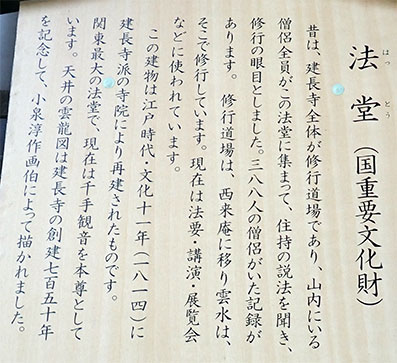 法堂（国重要文化財）
はっとう
昔は、建長寺全体が修行道場であり、山内にいる
僧侶全員がこの法堂に集まって、住持の説法を聞き、
修行の眼目としました。三八八人の僧侶がいた記録が
あります。 修行道場は、西来庵に移り雲水は、
そこで修行しています。現在は法要・講演・展覧会
などに使われています。
この建物は江戸時代・文化十一年（一八一四）に
建長寺派の寺院により再建されたものです。
関東最大の法堂で、現在は千手観音を本尊として
います。天井の雲龍図は建長寺の創建七百五十年
を記念して、小泉淳作画伯によって描かれました。